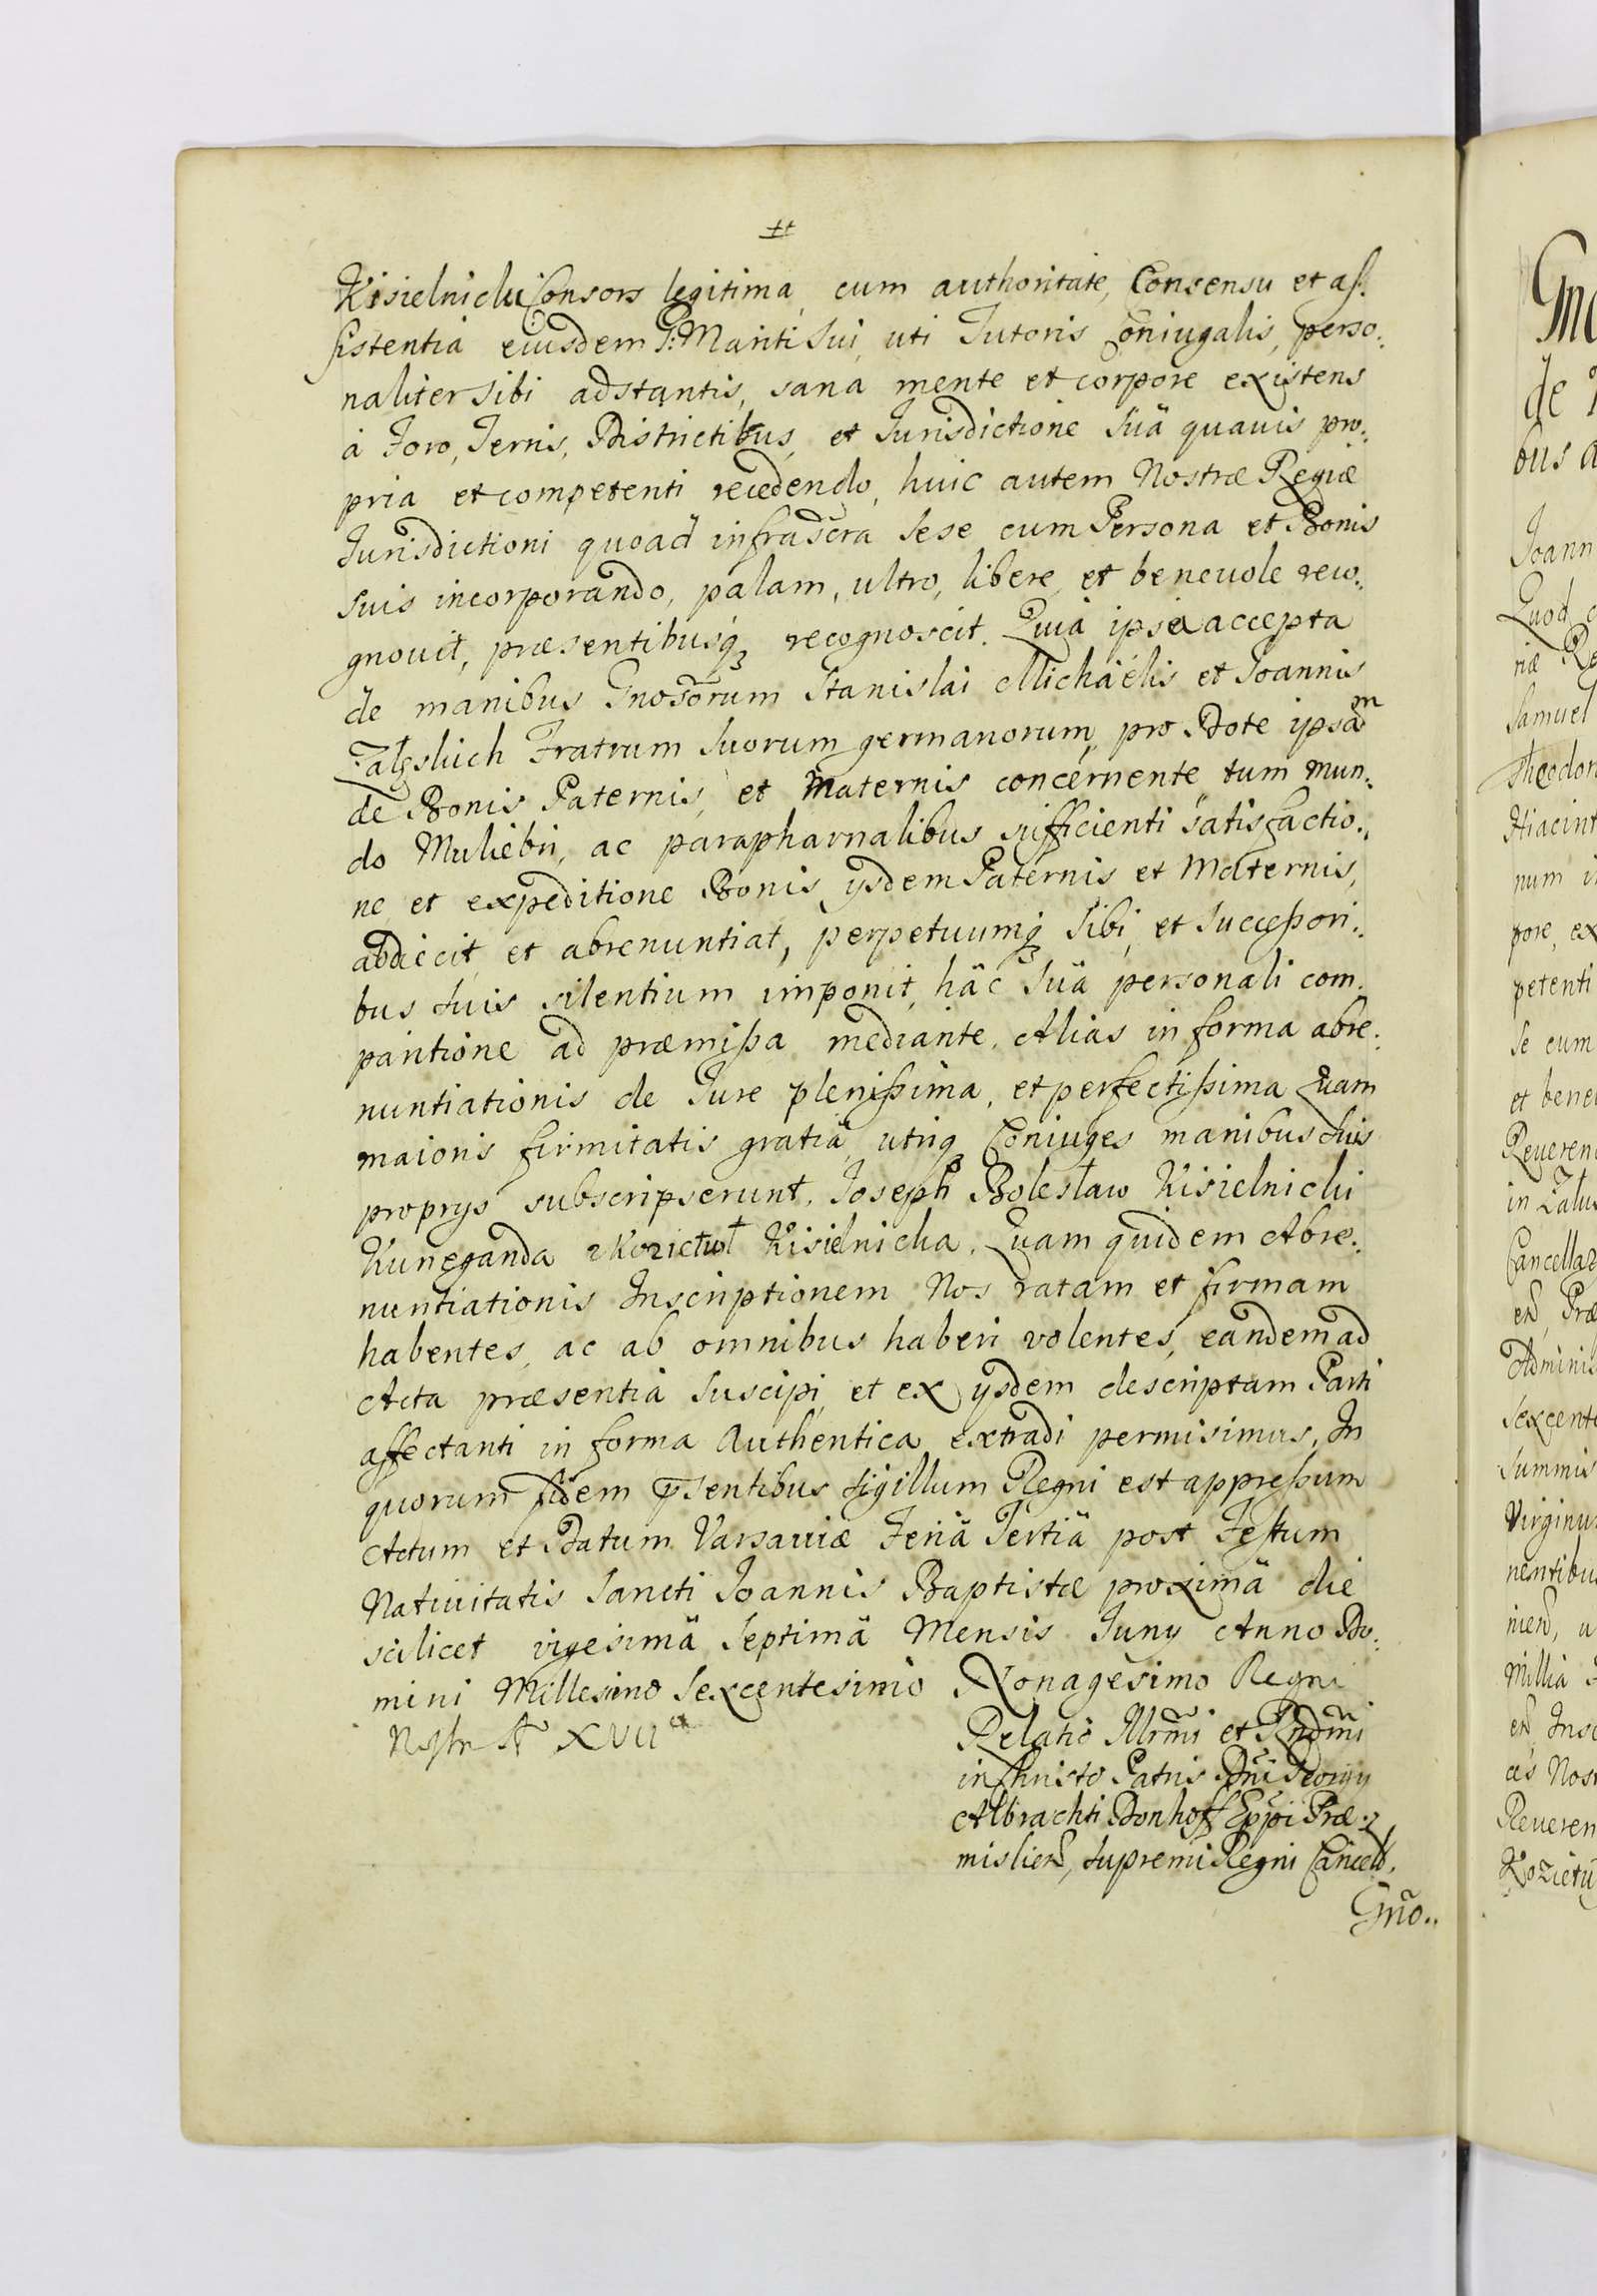 Kisielnicki Consors legitima, cum authoritate, Consensu et as:
sistentia eiusdem G: Mariti Sui, uti Tutoris Coniugalis, perso:
naliter sibi adstantis, sana mente et corpore existens
à Foro, Terris, Districtibus, et Jurisdictione Suä quauis pro:
pria et competenti recedendo, huic autem Nostræ Regiæ
Jurisdictioni quoad infrascra Sese cum Persona et Bonis
suis incorporando, palam, ultro, libere, et beneuole reco:
gnouit, præsentibusq recognoscit. Quia ipsa accepta
de manibus Gnosorum Stanislai Michaelis et Joannis
Fratrum Suorum germanorum, pro Dote ipsam
de Bonis Paternis, et Maternis concernente, tum Mun:
do Muliebri, ac parapharnalibus sufficienti satisfactio:
ne et expeditione Bonis ijsdem Paternis et Maternis,
abdicit, et abrenuntiat, perpetuumq Sibi, et Successori:
bus Suis silentium imponit, häc Suä personali com:
paritione ad præmissa mediante. Alias in forma abre:
nuntiationis de Jure plenissima, et perfectissima Quam
maioris firmitatis gratiä, utriq Coniuges manibus Suis
proprijs subscripserunt. Joseph Bolesław Kisielnicki
Kunęganda Kisielnicka. Quam quidem Abre:
nuntiationis Inscriptionem Nos ratam et firmam
habentes, ac ab omnibus haberi volentes, eandem ad
Acta præsentia Suscipi, et ex ijsdem descriptam Parti
affectanti in forma Authentica extradi permisimus. In
quorum fidem psentibus Sigillum Regni est appressum
Actum et Datum Varsauiæ Feriä Tertiä post Festum
Natiuitatis Sancti Joannis Baptistæ proximä die
scilicet vigesimä Septimä Mensis Junij Anno Do:
mini Millesimo Sexcentesimo Nonagesimo Regni
Nostri XVII
Relatio Illrmi et Rndmi
in Christo Patris Dni Georgij
Albrachti Donhoff Eppi Præ:
mislien, Supremi Regni Cancell.
Gño..
Gno
de
bus a
Joann
Quod
riæ Re
Samuel
Theodor
Hiacint
num i
pore, ex
petenti
se cum
et bene
Reueren
in Zalus
Cancella
Præ
Adminis
Sexcent
Summis
Virginu
nentibu
Millia
Insc
Nos
Reueren
Kozietu